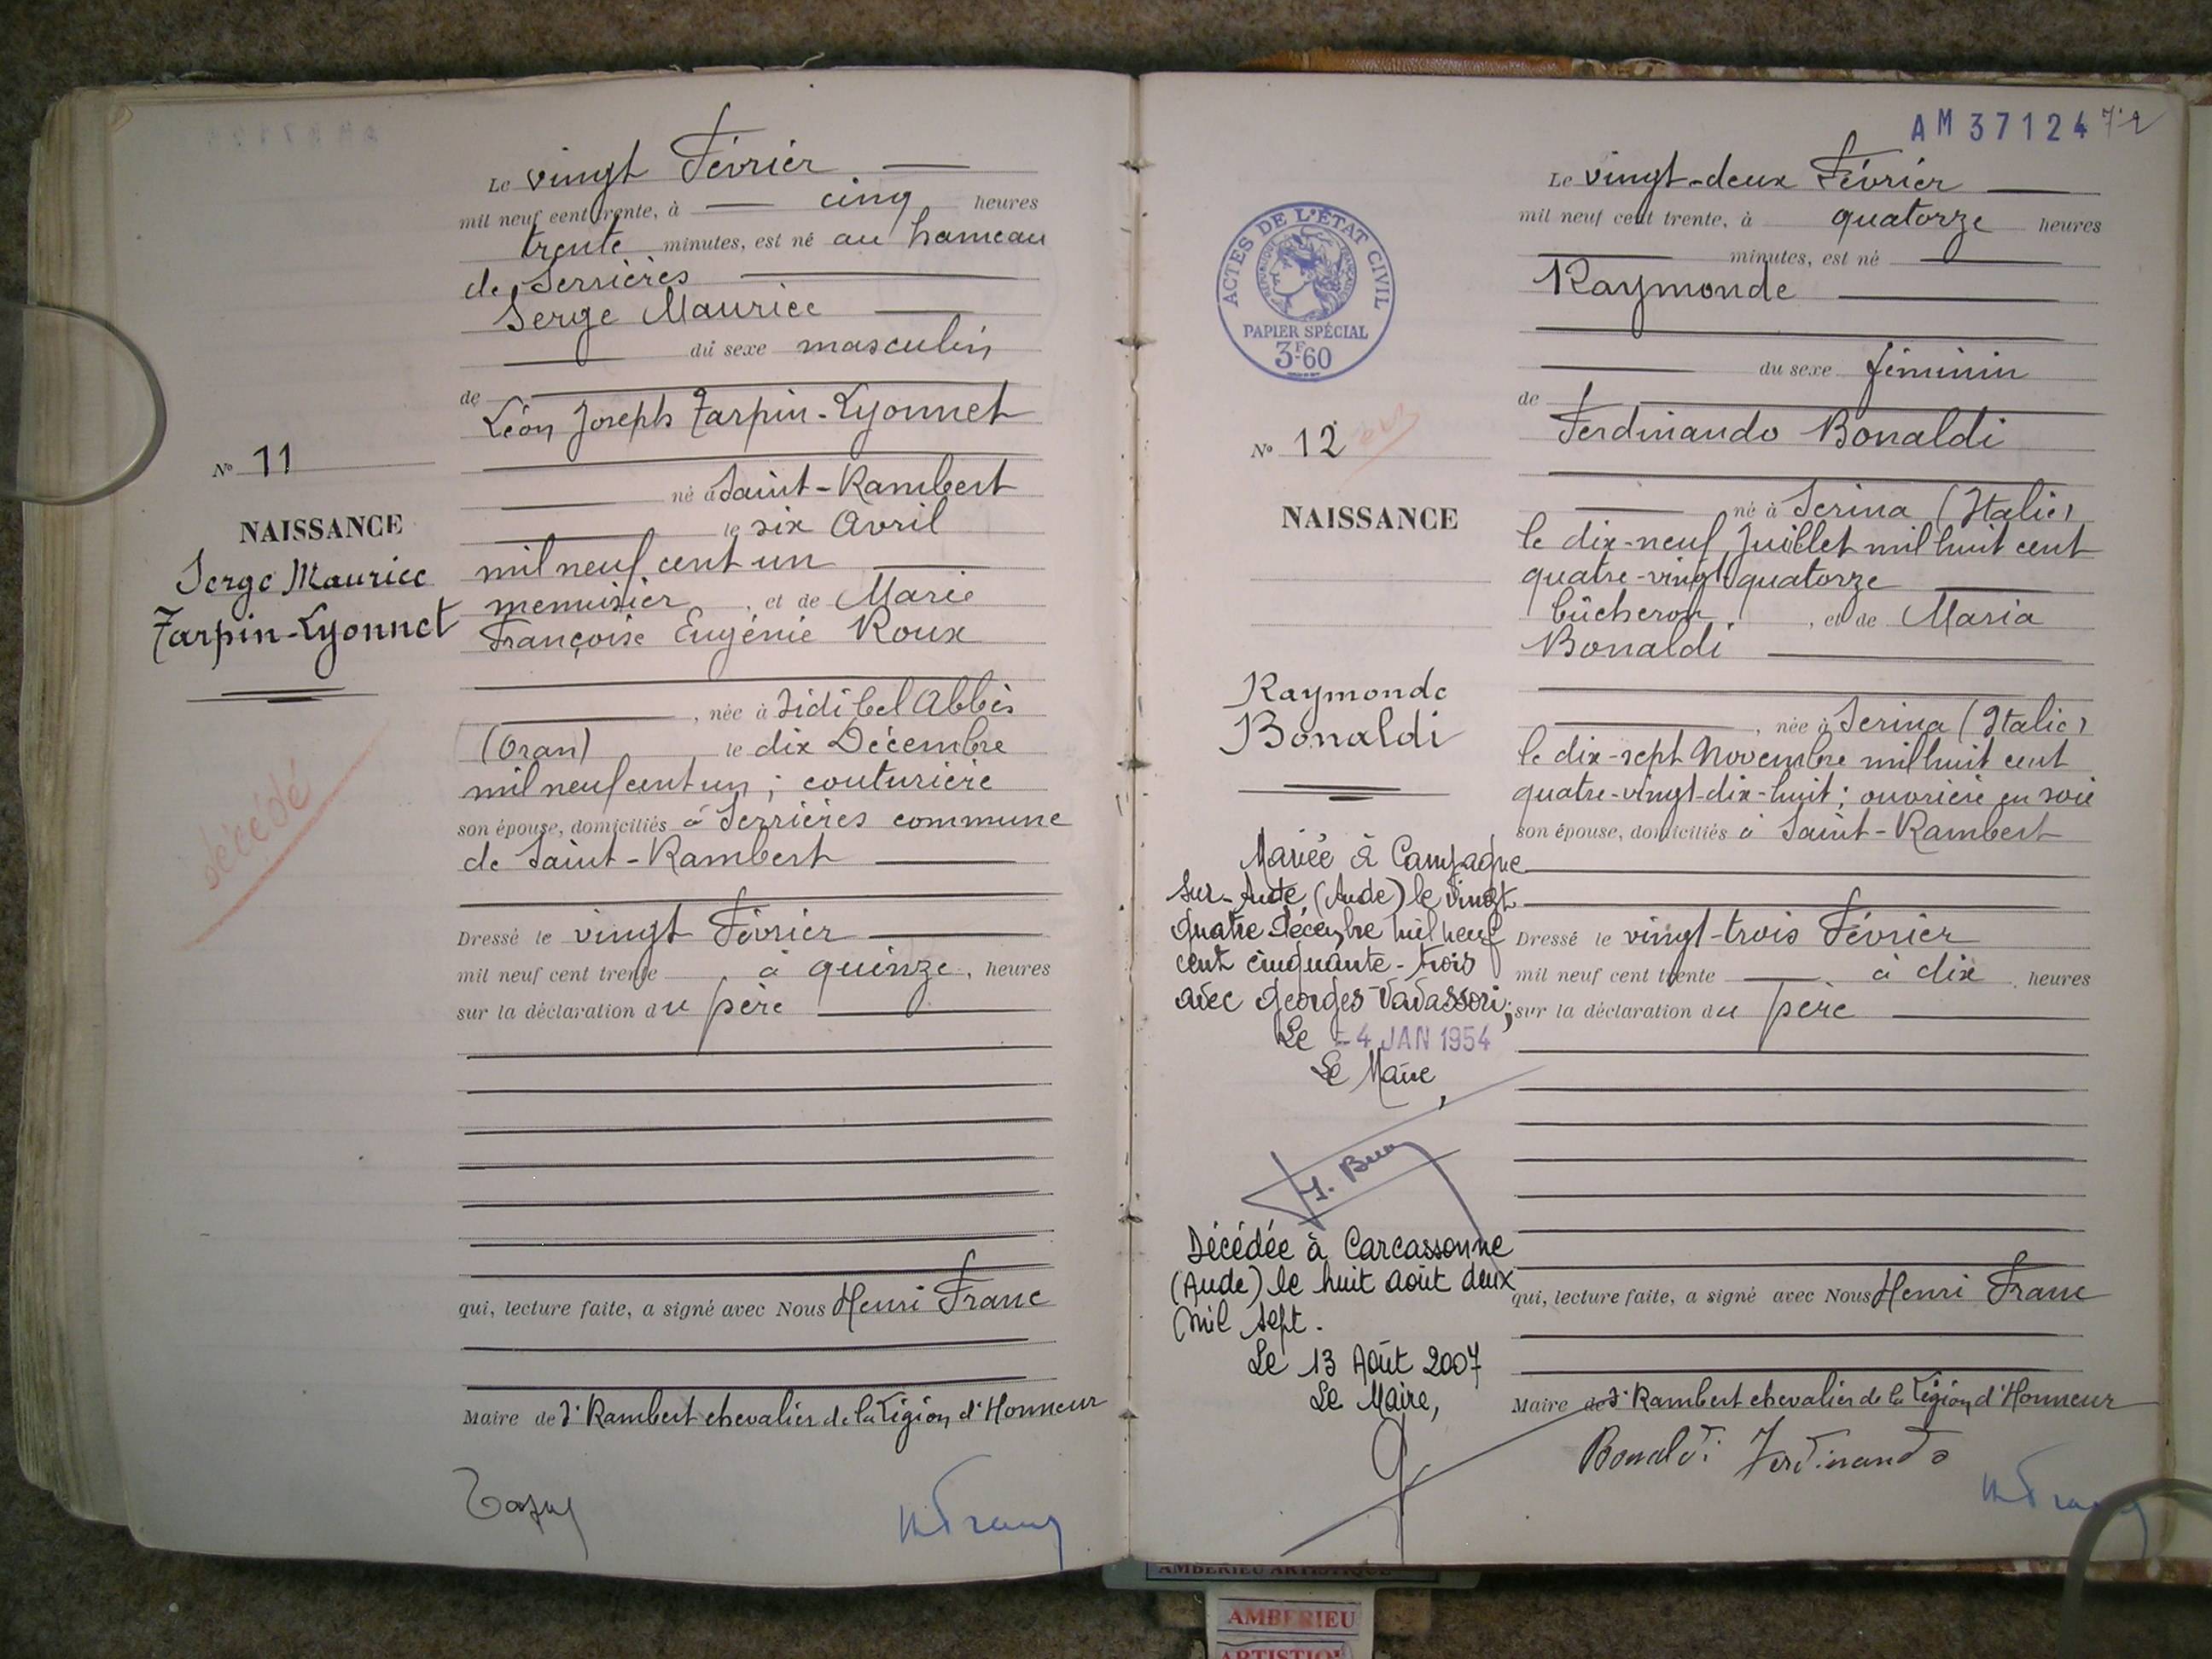 Le vingt Février
mil neuf cent trente, à cinq heures
trente minutes, est né au hameau
de Serrières
Serge Maurice
du sexe masculin
de
Léon Joseph Tarpin-Lyonnet
né à Saint-Rambert
le six Avril
mil neuf cent un
menuisier, et de Marie
Françoise Eugénie Roux
, née à Sidi bel Abbès
(Oran) le dix Décembre
mil neuf cent un ; couturière
son épouse, domiciliés à Serrières commune
de Saint-Rambert
Dressé le vingt Février
mil neuf cent trente, à quinze, heures
sur la déclaration du père
qui, lecture faite, a signé avec Nous Henri Franc
Maire de St Rambert chevalier de la Légion d'Honneur
No 11
NAISSANCE
Serge Maurice
Tarpin-Lyonnet
décédé
AM 37124 72
Le vingt-deux Février
mil neuf cent trente, à quatorze heures
minutes, est né
Raymonde
du sexe féminin
de
Ferdinando Bonaldi
né à Serina (Italie)
le dix-neuf Juillet mil huit cent
quatre-vingt quatorze
bûcheron, et de Maria
Bonaldi
, née à Serina (Italie)
le dix-sept Novembre mil huit cent
quatre-vingt-dix-huit ; ouvrière en soie
son épouse, domiciliés à Saint-Rambert
Dressé le vingt-trois Février
mil neuf cent trente, à dix, heures
sur la déclaration du père
qui, lecture faite, a signé avec Nous Henri Franc
Maire de St Rambert chevalier de la Légion d'Honneur
Bonaldi Ferdinando
H Franc
ACTES DE L'ÉTAT CIVIL
RÉPUBLIQUE FRANÇAISE
PAPIER SPÉCIAL
3F.60
No 12
NAISSANCE
Raymonde
Bonaldi
Mariée à Campagne
sur-Aude (Aude) le vingt
quatre décembre mil neuf
cent cinquante-trois
avec Georges Vavassori ;
Le -4 JAN 1954
Le Maire,
Décédée à Carcassonne
(Aude) le huit août deux
mil sept.
Le 13 Août 2007
Le Maire,
H Franc
AMBERIEU ARTISTIQUE
AMBERIEU
ARTISTIQUE